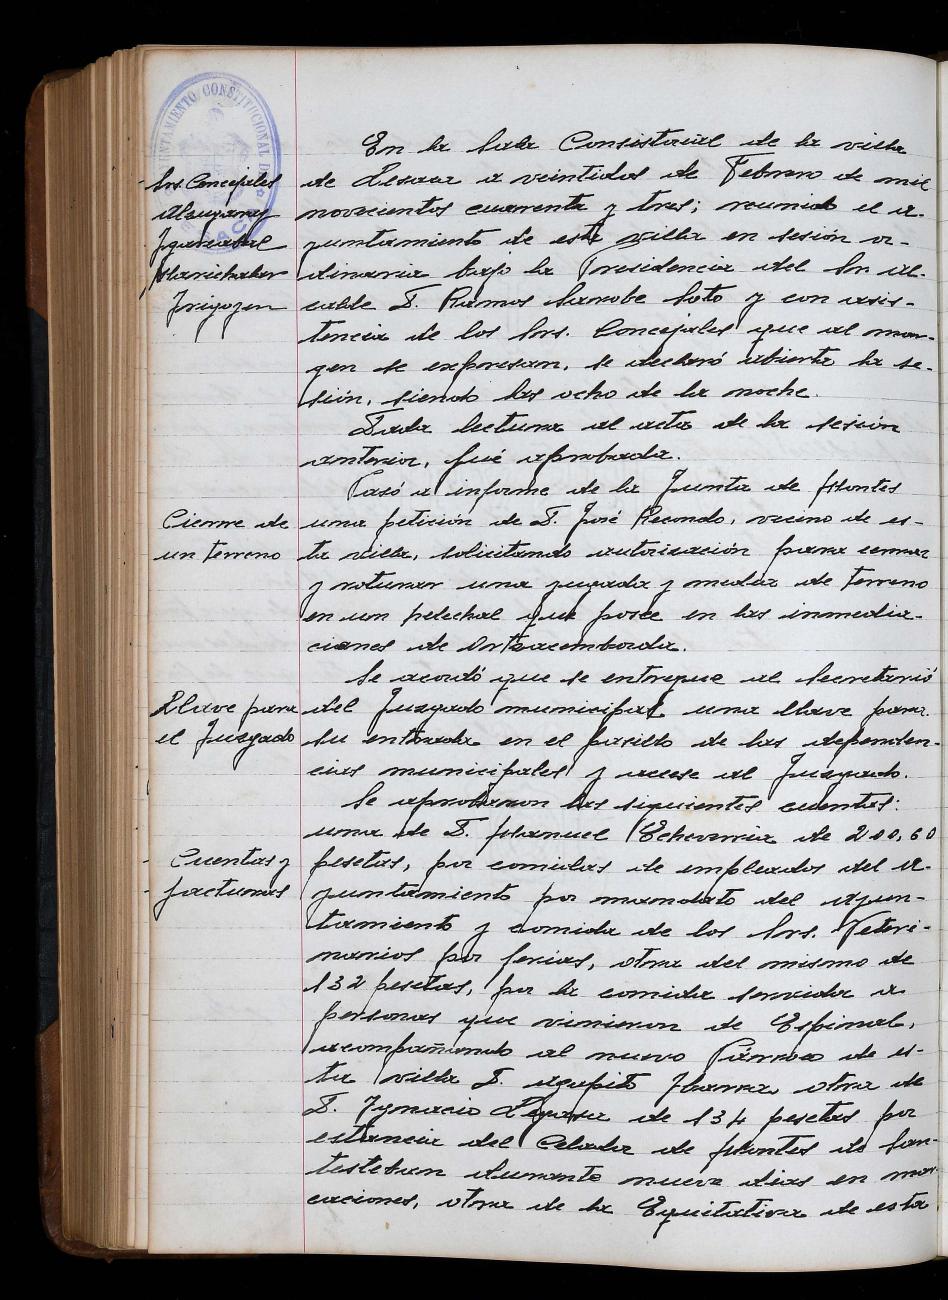 AYUNTAMIENTO CONSTITUCIONAL DE
Srs. Concejales
Alzugaray
Igarzabal
Marichalar
Irigoyen
En la Sala Consistorial de la villa
de Lesaca a veintidos de Febrero de mil
novecientos cuarenta y tres; reunido el a-
yuntamiento de esta villa en sesión or-
dinaria bajo la Presidencia del Sr. al-
calde D. Ramos Sarobe Soto y con asis-
tencia de los Srs. Concejales que al mar-
gen se expresan, se declaró abierta la se-
sión, siendo las ocho de la noche.
Dada lectura al acta de la sesión
anterior, fué aprobada.
Pasó a informe de la Junta de Montes
Cierre de
un terreno
una petición de D. José Recondo, vecino de es-
ta villa, solicitando autorización para cerrar
y roturar una yugada y media de terreno
en un helechal que posee en las inmedia-
ciones de
Se acordó que se entregue al Secretario
Llave para
el Juzgado
del Juzgado municipal una llave para
su entrada en el pasillo de las dependen-
cias municipales y accese al Juzgado.
Se aprobaron las siguientes cuentas:
una de D. Manuel Echeverria de 200,60
Cuentas y
facturas
pesetas, por comidas de empleados del a-
yuntamiento por mandato del ayun-
tamiento y comida de los Srs. Veteri-
narios por ferias, otra del mismo de
132 pesetas, por la comida servida a
personas que vinieron de Espinal,
acompañando al nuevo Párroco de es-
ta villa D. Agapito Ibarra, otra de
D. Ignacio Legasa de 134 pesetas por
estancia del Celador de Montes de San-
testeban durante nueve dias en mar-
caciones, otra de la Equitativa de esta